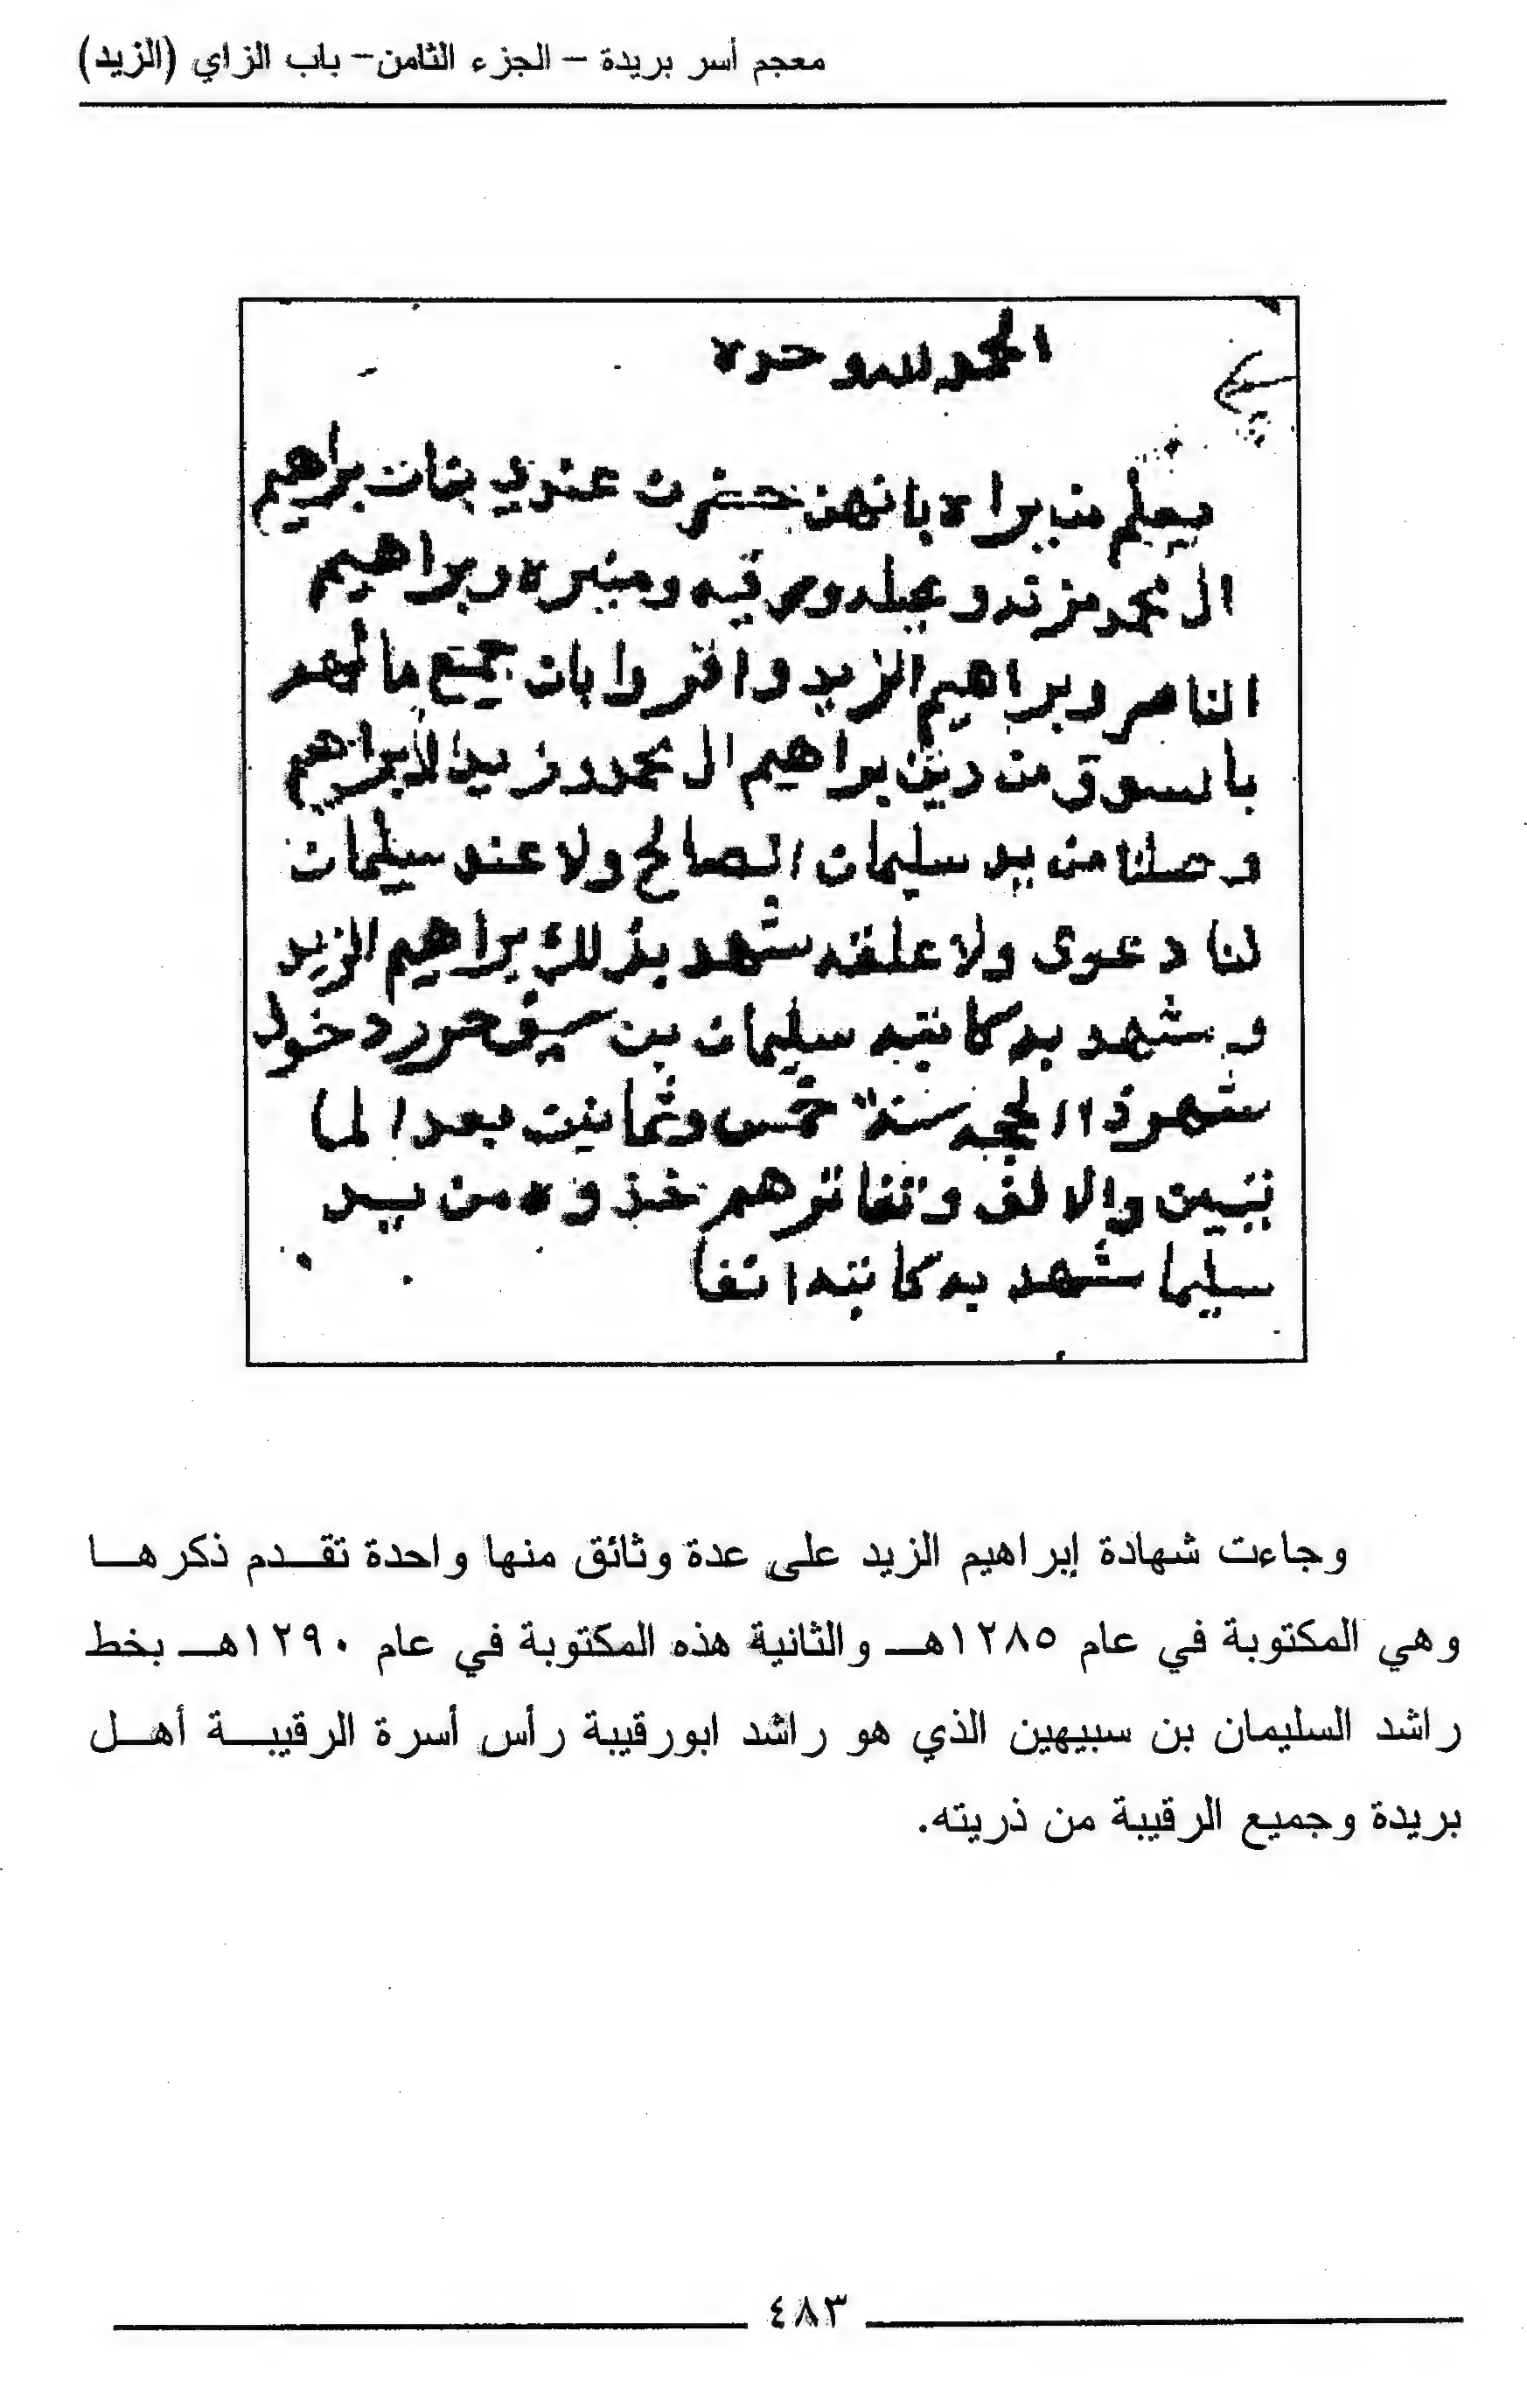 معجم أسر بريدة – الجزء الثامن– باب الزاي (الزيد)
الحمد لله وحده
يعلم من يراه بانهن حضرن عندي بنات براهيم
ال محمد مزنه و وميثره وبراهيم
الناصر وبراهيم الزيد واقروا بان جميع مالهم
بالسوق من دين براهيم ال محمد
وصلنا من يد سليمان الصالح ولا عند سليمان
لنا دعوى ولا علقه شهد بذلك براهيم الزيد
وشهد به كاتبه سليمان بن سيف حرر دخول
شهر ذا الحجه سنة خمس وثمانين بعد الما
تيين والالف خذوه من يد
سليما شهد به كاتبه
وجاءت شهادة إبراهيم الزيد على عدة وثائق منها واحدة تقـدم ذكرهـا
وهي المكتوبة في عام ١٢٨٥هـ والثانية هذه المكتوبة في عام ١٢٩٠هـ بخط
راشد السليمان بن سبيهين الذي هو راشد ابورقيبة رأس أسرة الرقيبـة أهـل
بريدة وجميع الرقيبة من ذريته.
٤٨٣